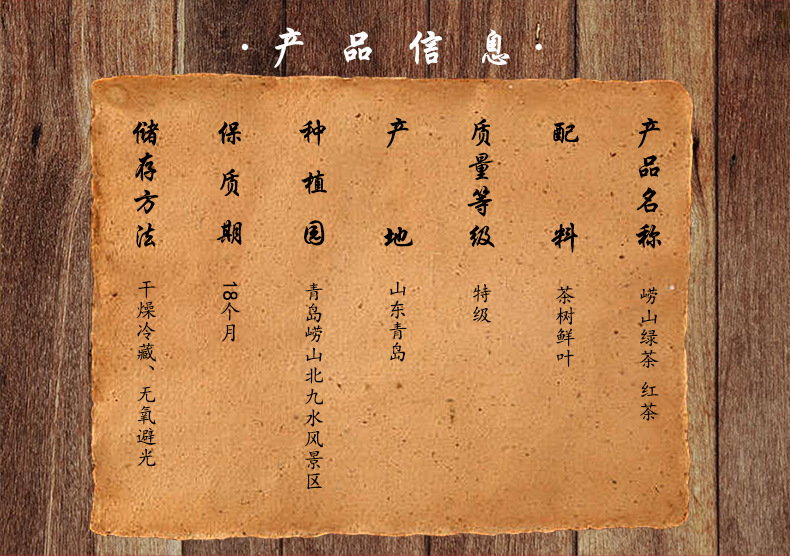 ·产品信息·
产品名称 崂山绿茶 红茶
配料 茶树鲜叶
质量等级 特级
产地 山东青岛
种植园 青岛崂山北九水风景区
保质期 18个月
储存方法 干燥冷藏、无氧避光